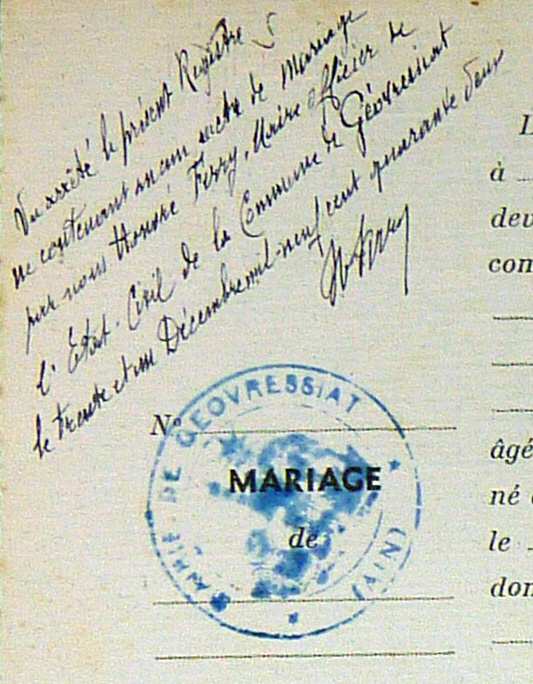 Vu arrêté le présent Registre
ne contenant aucun acte de Mariage
par nous Honoré Ferry, Maire officier de
l'Etat-Civil de la Commune de Géovressiat
le trente et un Décembre mil-neuf cent quarante deux
H Ferry
MAIRIE DE GÉOVRESSIAT (AIN)
N°
MARIAGE
de
à
dev
con
âgé
né
le
don